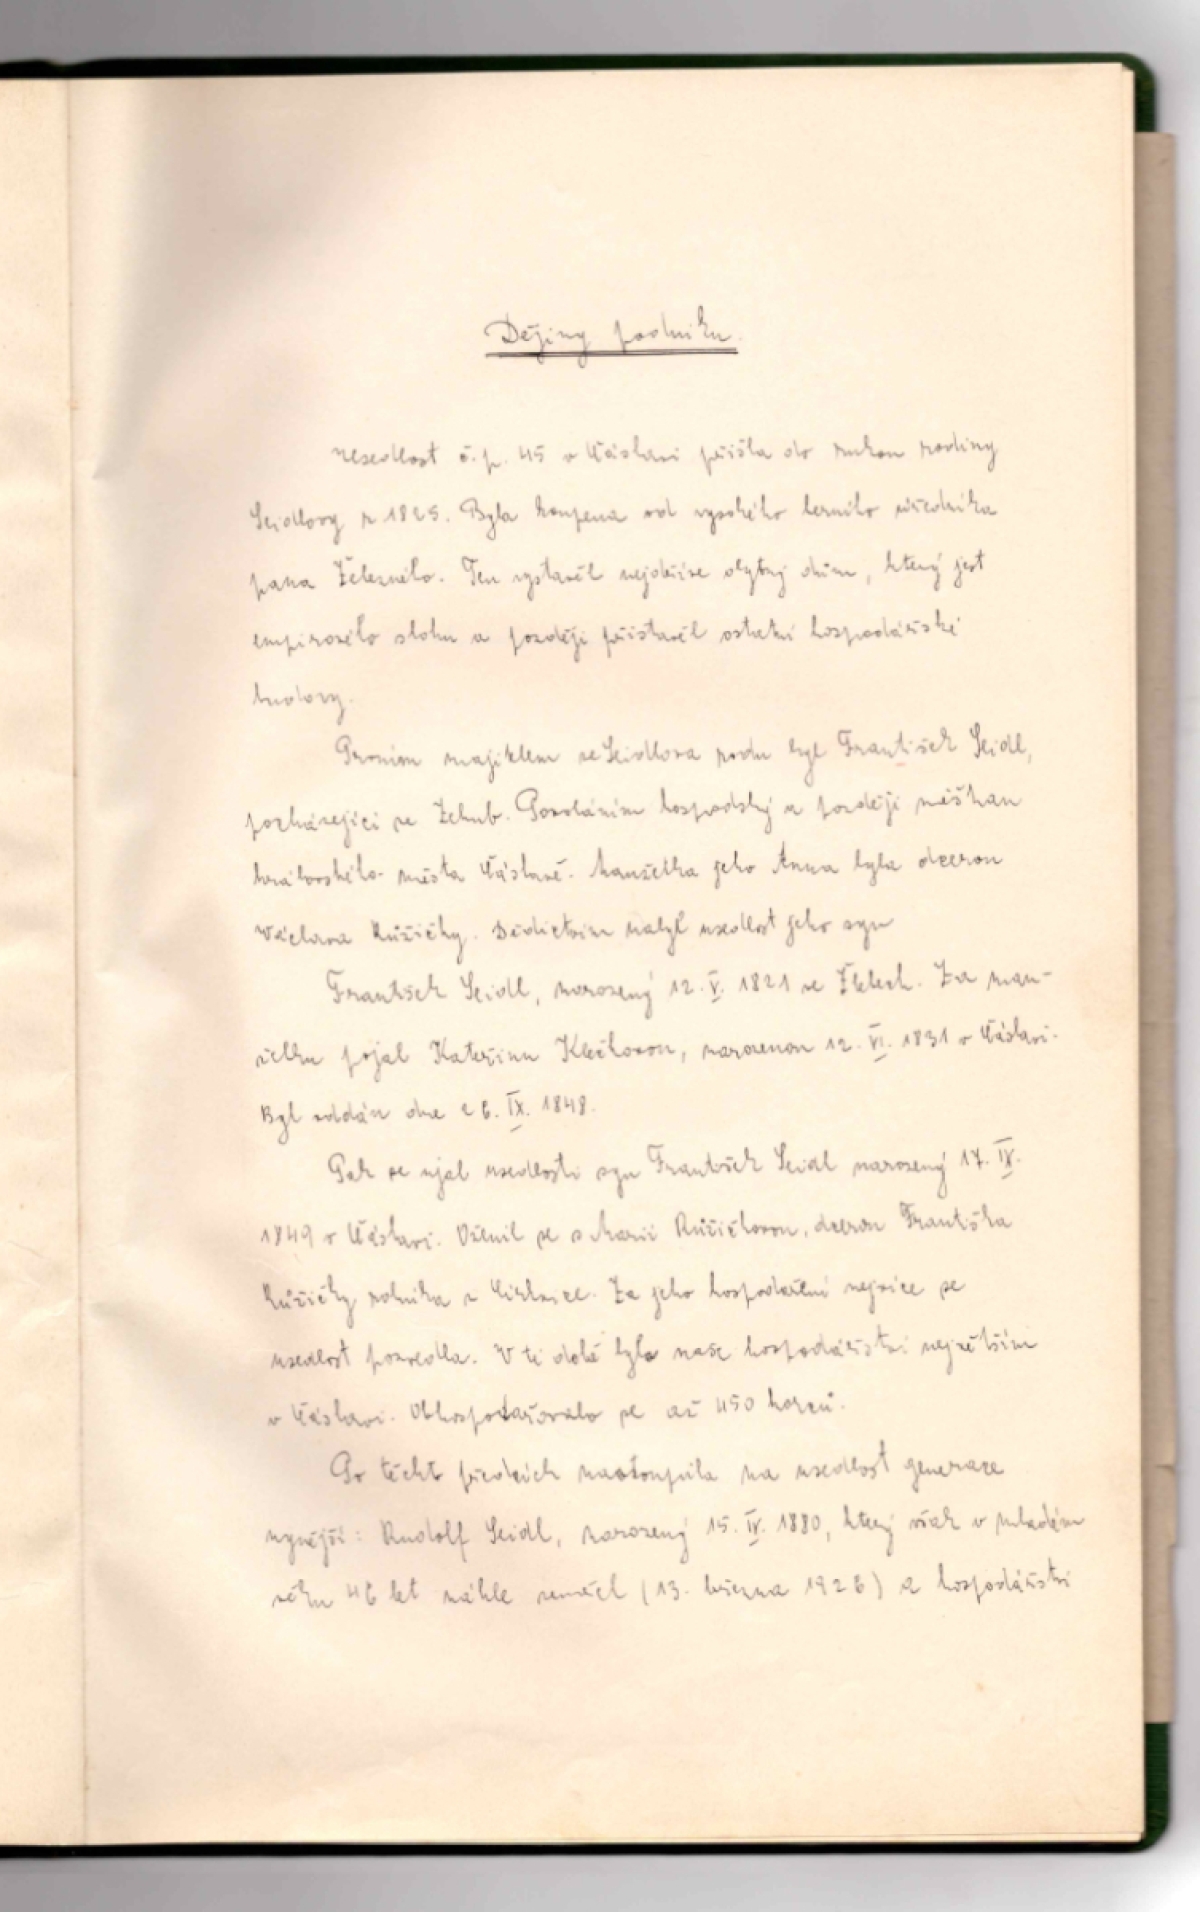 Dějiny podniku.
Usedlost č.p. 45 v Čáslavi přišla do rukou rodiny
Seidlovy r 1825. Byla koupena od vysokého berního úředníka
pana Železného. Ten vystavěl nejdříve obytný dům, který jest
empirového slohu a později přistavěl ostatní hospodářské
budovy.
Prvním majitelem ze Seidlova rodu byl František Seidl,
pocházející ze Žehub. Povoláním hospodský a později měšťan
královského města Čáslavě. Manželka jeho Anna byla dcerou
Václava Růžičky. Dědictvím nabyl usedlost jeho syn
František Seidl, narozený 12. V. 1821 ve Žlebech. Za man-
želku pojal Kateřinu Klečkovou, narozenou 12. VI. 1831 v Čáslavi.
Byl oddán dne 26. IX. 1848.
Pak se ujal usedlosti syn František Seidl narozený 17. IX.
1849 v Čáslavi. Oženil se s Marií Růžičkovou, dcerou Františka
Růžičky rolníka z Cirkvice. Za jeho hospodaření nejvíce se
usedlost pozvedla. V té době bylo naše hospodářství největším
v Čáslavi. Obhospodařovalo se až 450 korců.
Po těchto předcích nastoupila na usedlost generace
nynější: Rudolf Seidl, narozený 15. IV. 1880, který však v mladém
věku 46 let náhle zemřel (13. března 1926) a hospodářství